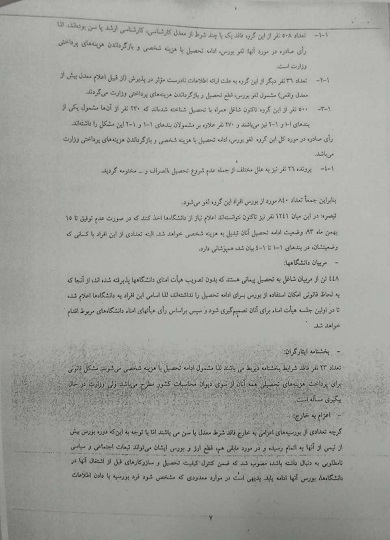 ۱-۱- تعداد ۵۰۸ نفر از این گروه فاقد یک یا چند شرط از معدل کارشناسی، کارشناسی ارشد یا سن بوده‌اند. لذا
رأی صادره در مورد آنها، لغو بورس، ادامه تحصیل با هزینه شخصی و بازگرداندن هزینه‌های پرداختی
وزارت است.
۱-۲- تعداد ۳۶ نفر دیگر از این گروه به علت ارائه اطلاعات نادرست مؤثر در پذیرش (از قبیل اعلام معدل بیش از
معدل واقعی) مشمول لغو بورس، قطع تحصیل و بازگرداندن هزینه‌های پرداختی وزارت می‌گردند.
۱-۳- ۵۰۰ نفر از این گروه تاکنون شاغل همراه با تحصیل شناخته شده‌اند که ۲۳۰ نفر از آنها مشمول یکی از
بندهای ۱-۱ و ۱-۲ نیز می‌باشند و ۲۷۰ نفر علاوه بر مشمولان بندهای ۱-۱ و ۱-۲ این مشکل را داشته‌اند.
رأی صادره در مورد کل این گروه لغو بورس، ادامه تحصیل با هزینه شخصی و بازگرداندن هزینه‌های پرداختی وزارت
می‌باشد.
۱-۴- پرونده ۲۶ نفر نیز به علل مختلف از جمله عدم شروع تحصیل، انصراف و ... مختومه گردید.
بنابراین جمعاً تعداد ۸۴۰ مورد از بورس افراد این گروه لغو می‌شود.
تبصره: در این میان ۱۲۴۱ نفر نیز تاکنون نتوانسته‌اند اعلام نیاز از دانشگاه‌ها اخذ کنند که در صورت عدم توفیق تا ۱۵
بهمن ماه ۹۳ وضعیت ادامه تحصیل آنان تبدیل به هزینه شخصی خواهد شد. البته تعدادی از این افراد با کسانی که
وضعیتشان در بندهای ۱-۱ تا ۱-۴ بیان شد، همپوشانی دارد.
- مربیان دانشگاهها:
۴۴۸ تن از مربیان شاغل به تحصیل پیمانی هستند که بدون تصویب هیأت امنای دانشگاهها پذیرفته شده اند؛ از آنجا که
به لحاظ قانونی امکان استفاده از بورس برای ادامه تحصیل را نداشته‌اند، لذا اسامی این افراد به دانشگاه‌ها اعلام شده
تا در اولین جلسه هیأت امناء برای آنان تصمیم‌گیری شود و سپس براساس رأی هیأتهای امناء دانشگاه‌های مربوط اقدام
خواهد شد.
- بخشنامه ایثارگران:
تعداد ۲۳ نفر فاقد شرایط بخشنامه ذیربط می باشند لذا مشمول ادامه تحصیل با هزینه شخصی می‌شوند. مشکل قانونی
برای پرداخت هزینه‌های تحصیلی همه آنان از سوی دیوان محاسبات کشور مطرح می‌باشد ولی وزارت در حال
پیگیری مسأله است.
- اعزام به خارج:
گرچه تعدادی از بورسیه‌های اعزامی به خارج فاقد شرط معدل یا سن می باشند امّا با توجه به این‌که دوره بورس بیش
از نیمی از آنها به اتمام رسیده و در مورد مابقی هم، قطع ارز و بورس ایشان می‌تواند تبعات اجتماعی و سیاسی
نامطلوبی به دنبال داشته باشد، مصوب شد که ضمن کنترل کیفیت تحصیل و سازوکارهای قبل از اشتغال آنها در
دانشگاه‌ها، بورس آنها ادامه یابد. بدیهی است در موارد معدودی که مشخص شود فرد بورسیه با دادن اطلاعات
۷